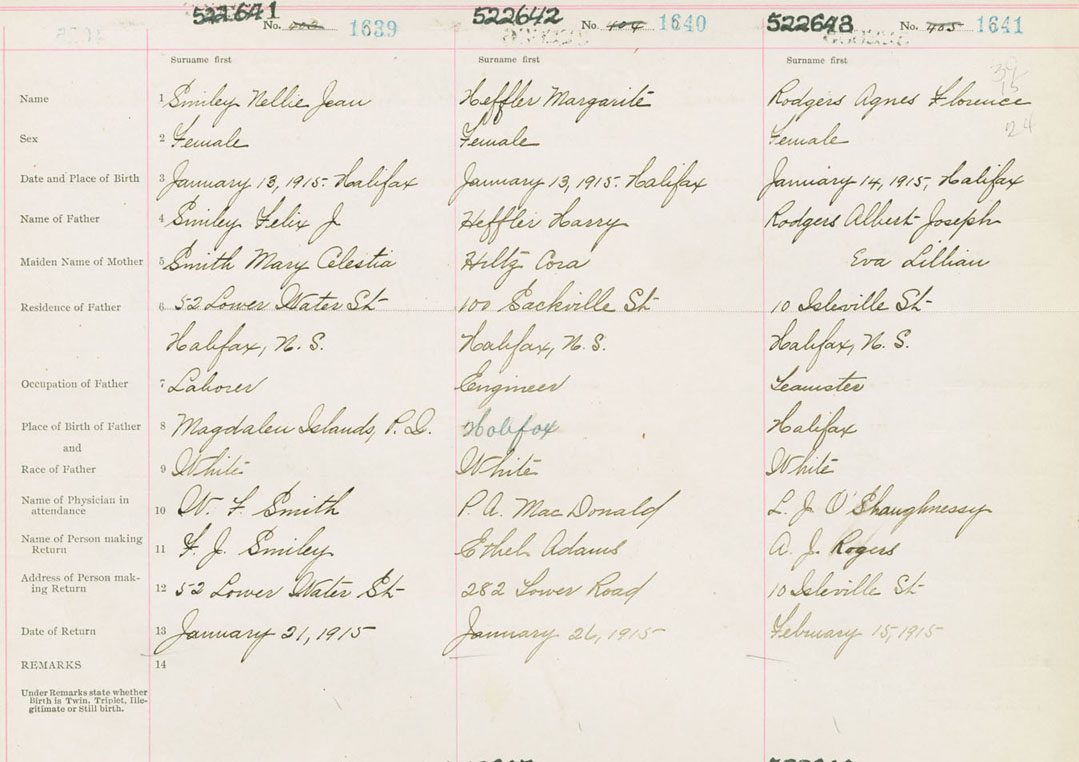 522641 No. 1639 522642 No. 404 1640 522643 No. 405 1641
Surname first Surname first Surname first
39
15
Name 1 Smiley Nellie Jean Heffler Margarite Rodgers Agnes Florence
24
Sex 2 Female Female Female
Date and Place of Birth 3 January 13, 1915. Halifax January 13, 1915. Halifax January 14, 1915, Halifax
Name of Father 4 Smiley Felix J Heffler Harry Rodgers Albert Joseph
Maiden Name of Mother 5 Smith Mary Celestia Hiltz Cora Eva Lillian
Residence of Father 6 52 Lower Water St 100 Sackville St 10 Isleville St
Halifax, N. S. Halifax, N. S. Halifax, N. S.
Occupation of Father 7 Laborer Engineer Teamster
Place of Birth of Father 8 Magdalen Islands, P. Q. Halifax Halifax
and
Race of Father 9 White White White
Name of Physician in
attendance 10 W. F. Smith P. A. MacDonald L. J. O'Shaughnessy
Name of Person making
Return 11 F. J. Smiley Ethel Adams A. J. Rogers
Address of Person mak-
ing Return 12 52 Lower Water St 282 Tower Road 10 Isleville St
Date of Return 13 January 21, 1915 January 26, 1915 February 15, 1915
REMARKS 14
Under Remarks state whether
Birth is Twin, Triplet, Ille-
gitimate or Still birth.